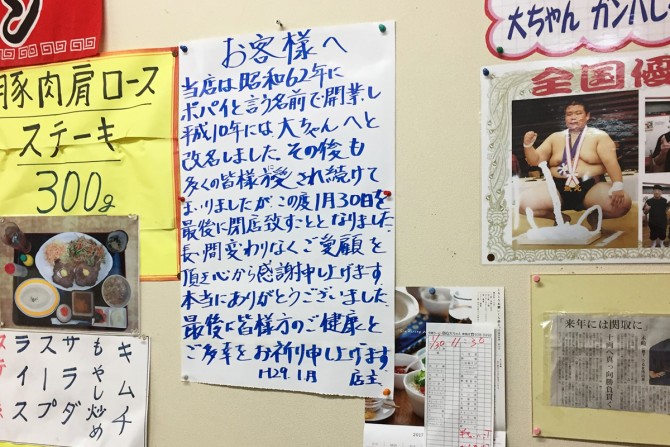 豚肉肩ロース
ステーキ
300g
お客様へ
当店は昭和62年に
ポパイと言う名前で開業し
平成10年には大ちゃんへと
改名しました。その後も
多くの皆様に愛され続けて
まいりましたが、この度1月30日を
最後に閉店致すこととなりました。
長い間変わりなくご愛顧を
頂き心から感謝申し上げます
本当にありがとうございました。
最後に皆様方のご健康と
ご多幸をお祈り申し上げます。
H29.1月 店主
大ちゃん ガンバレ
全国優
来年には関取に
キムチ
もやし炒め
サラダ
スープ
ライス